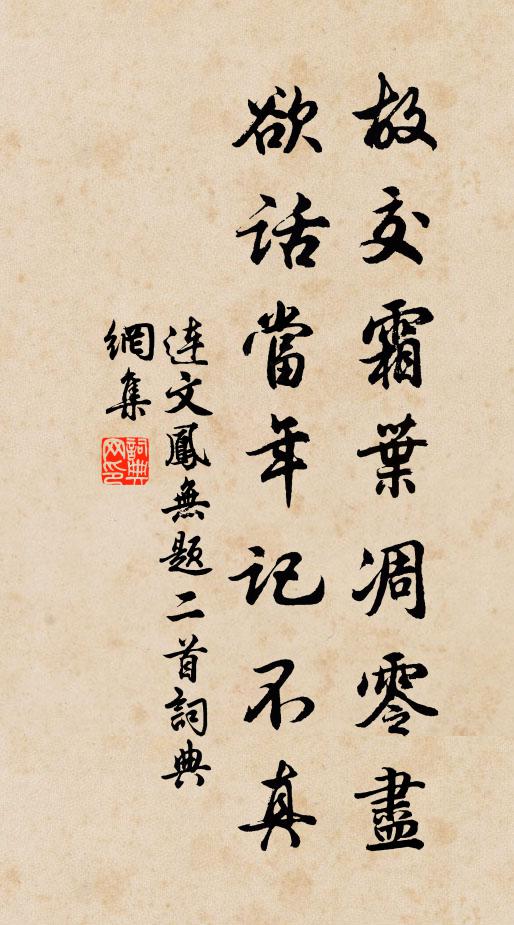 故交霜葉凋零盡
欲話當年記不真
連文鳳無題二首詞典
網集
詞典
网印